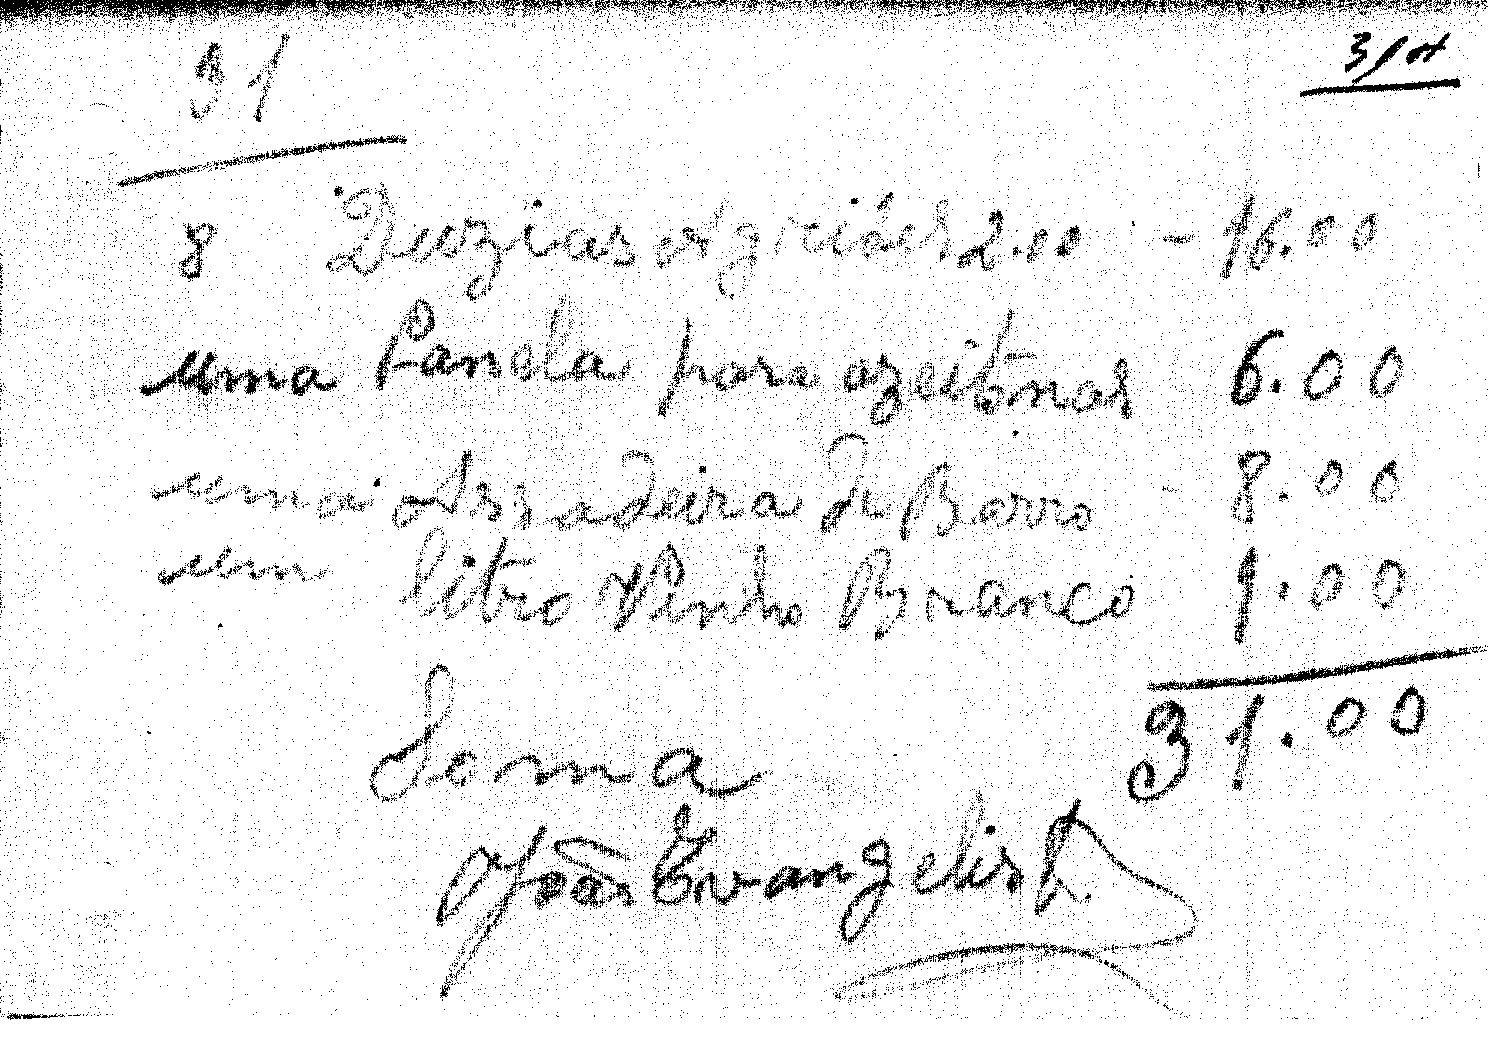 31
8 Duzias 2.00 - 16.00
uma Panela para azeitonas 6.00
uma Assadeira de Barro - 8.00
um litro Vinho Branco 1.00
Soma 31.00
João Evangelista